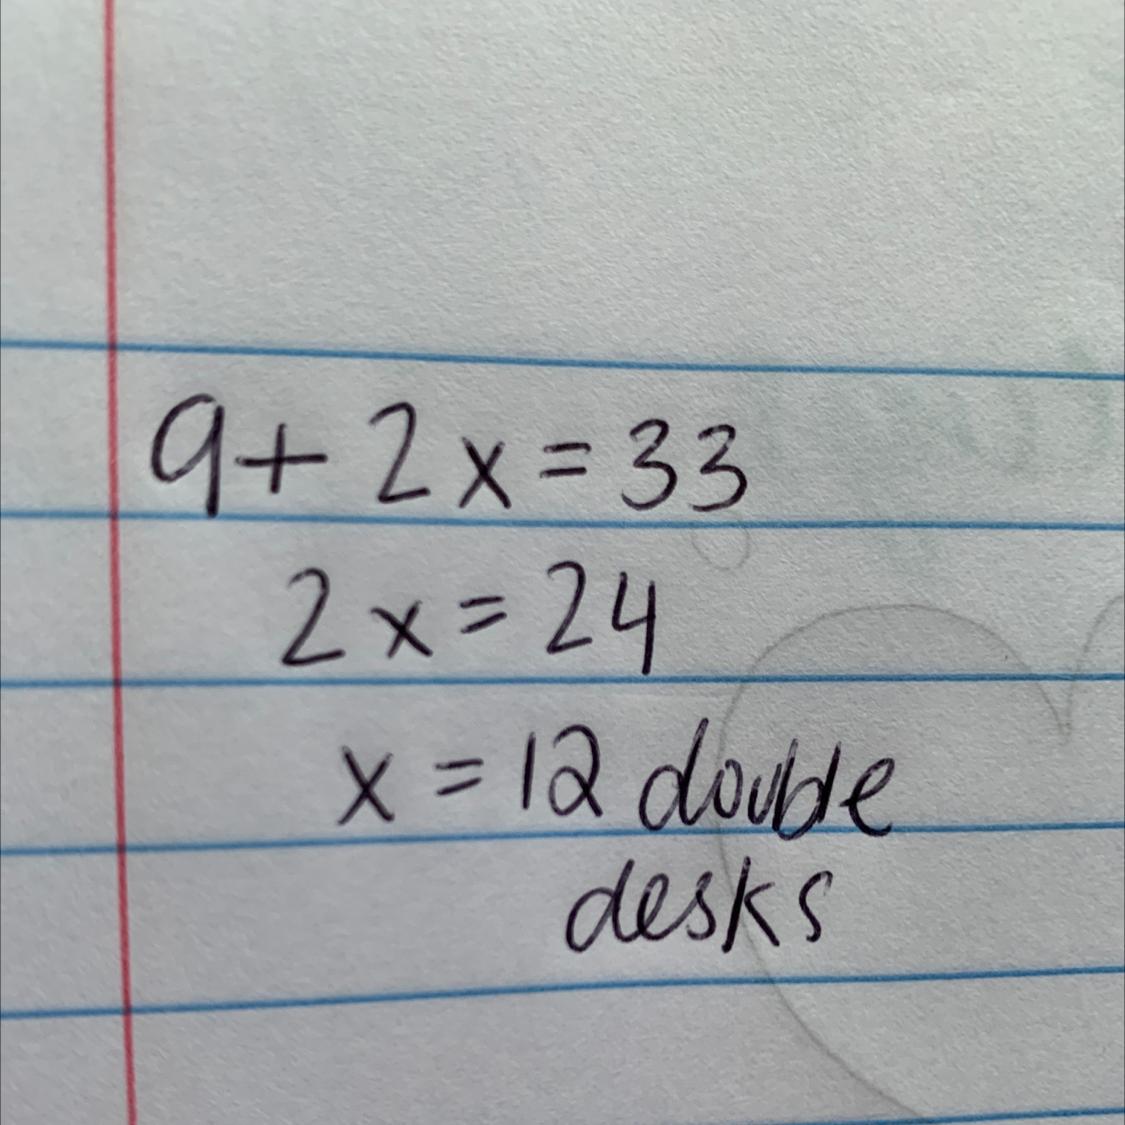 9 + 2x = 33
2x = 24
x = 12 double
desks